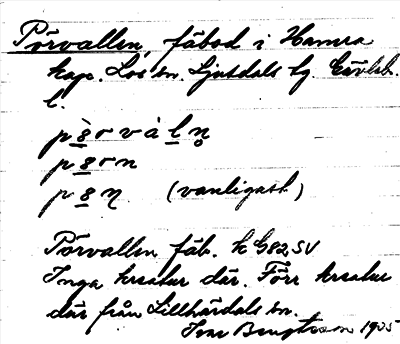 Pörvallen, fäbod i Hamra
kap. Los sn. Ljusdals tg. Gävleb.
l.
p 8 r v å l n
p 8 r n
p 8 n (vanligast)
Pörvallen fäb. k G82 SV
Inga kreatur där. Förr kreatur
där från Lillhärdals sn.
Ivar Bengtsson 1935